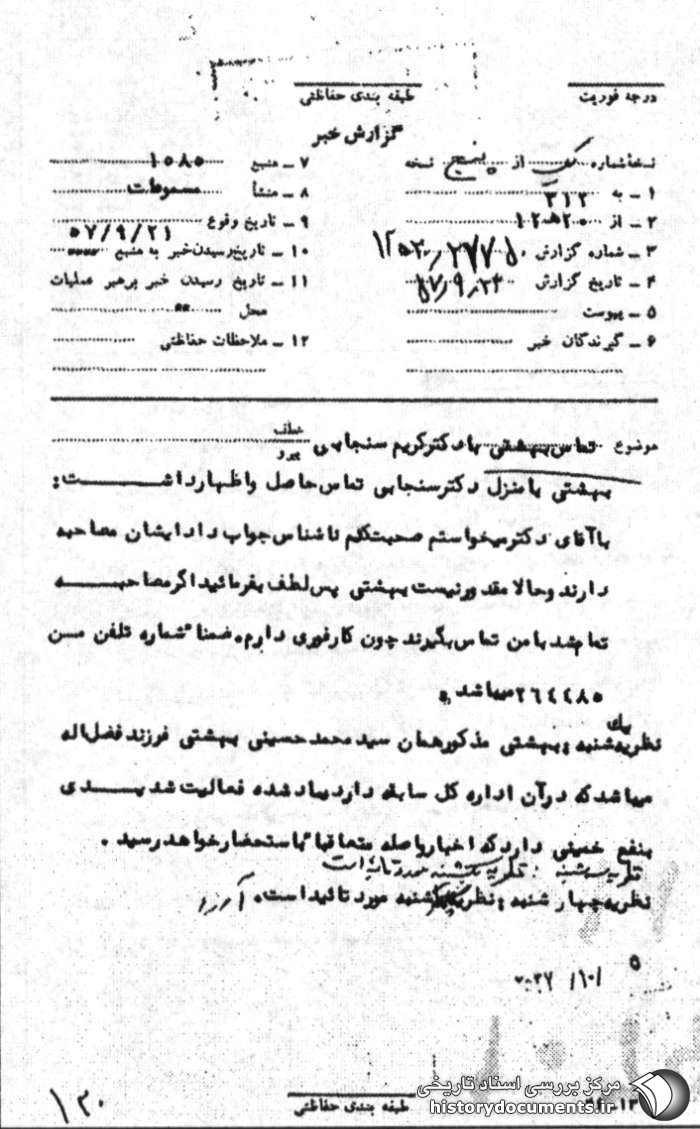 درجه فوریت
طبقه بندی حفاظتی
گزارش خبر
نسخه شماره یک از پنج نسخه
۱ ـ به ۳۱۲
۲ ـ از ۲۰ ه ۱۲
۳ ـ شماره گزارش
۴ ـ تاریخ گزارش ۵۷٫۹٫۲۳
۵ ـ پیوست
۶ ـ گیرندگان خبر
۷ ـ منبع ۱۰۸۵
۸ ـ منشأ مسموعات
۹ ـ تاریخ وقوع ۵۷/۹/۲۱
۱۰ ـ تاریخ رسیدن خبر به منبع
۱۱ ـ تاریخ رسیدن خبر برهبر عملیات
محل
۱۲ ـ ملاحظات حفاظتی
موضوع تماس بهشتی با دکتر کریم سنجابی
عطف
پیرو
بهشتی با منزل دکتر سنجابی تماس حاصل و اظهار داشت:
با آقای دکتر میخواستم صحبت کنم ناشناس جواب داد ایشان مصاحبه
دارند و حالا مقدور نیست بهشتی پس لطف بفرمائید اگر مصاحبه
تمام شد با من تماس بگیرند چون کار فوری دارم. ضمنا" شماره تلفن من
۲۶۴۴۸۵ میباشد.
نظریه یکشنبه: بهشتی مذکور همان سید محمد حسینی بهشتی فرزند فضل اله
میباشد که در آن اداره کل سابقه دارد یاد شده فعالیت شدیدی
بنفع خمینی دارد که اخبار واصله متعاقبا" باستحضار خواهد رسید.
نظریه سه شنبه: نظریه یکشنبه مورد تائید است
نظریه چهارشنبه: نظریه یکشنبه مورد تائید است.
۵
۱۰/
طبقه بندی حفاظتی
۱۳۰
مرکز بررسی اسناد تاریخی
historydocuments.ir